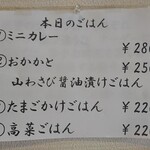 本日のごはん
①ミニカレー ¥280
②おかかと ¥250
山わさび醤油漬けごはん
①たまごかけごはん ¥220
③高菜ごはん ¥220